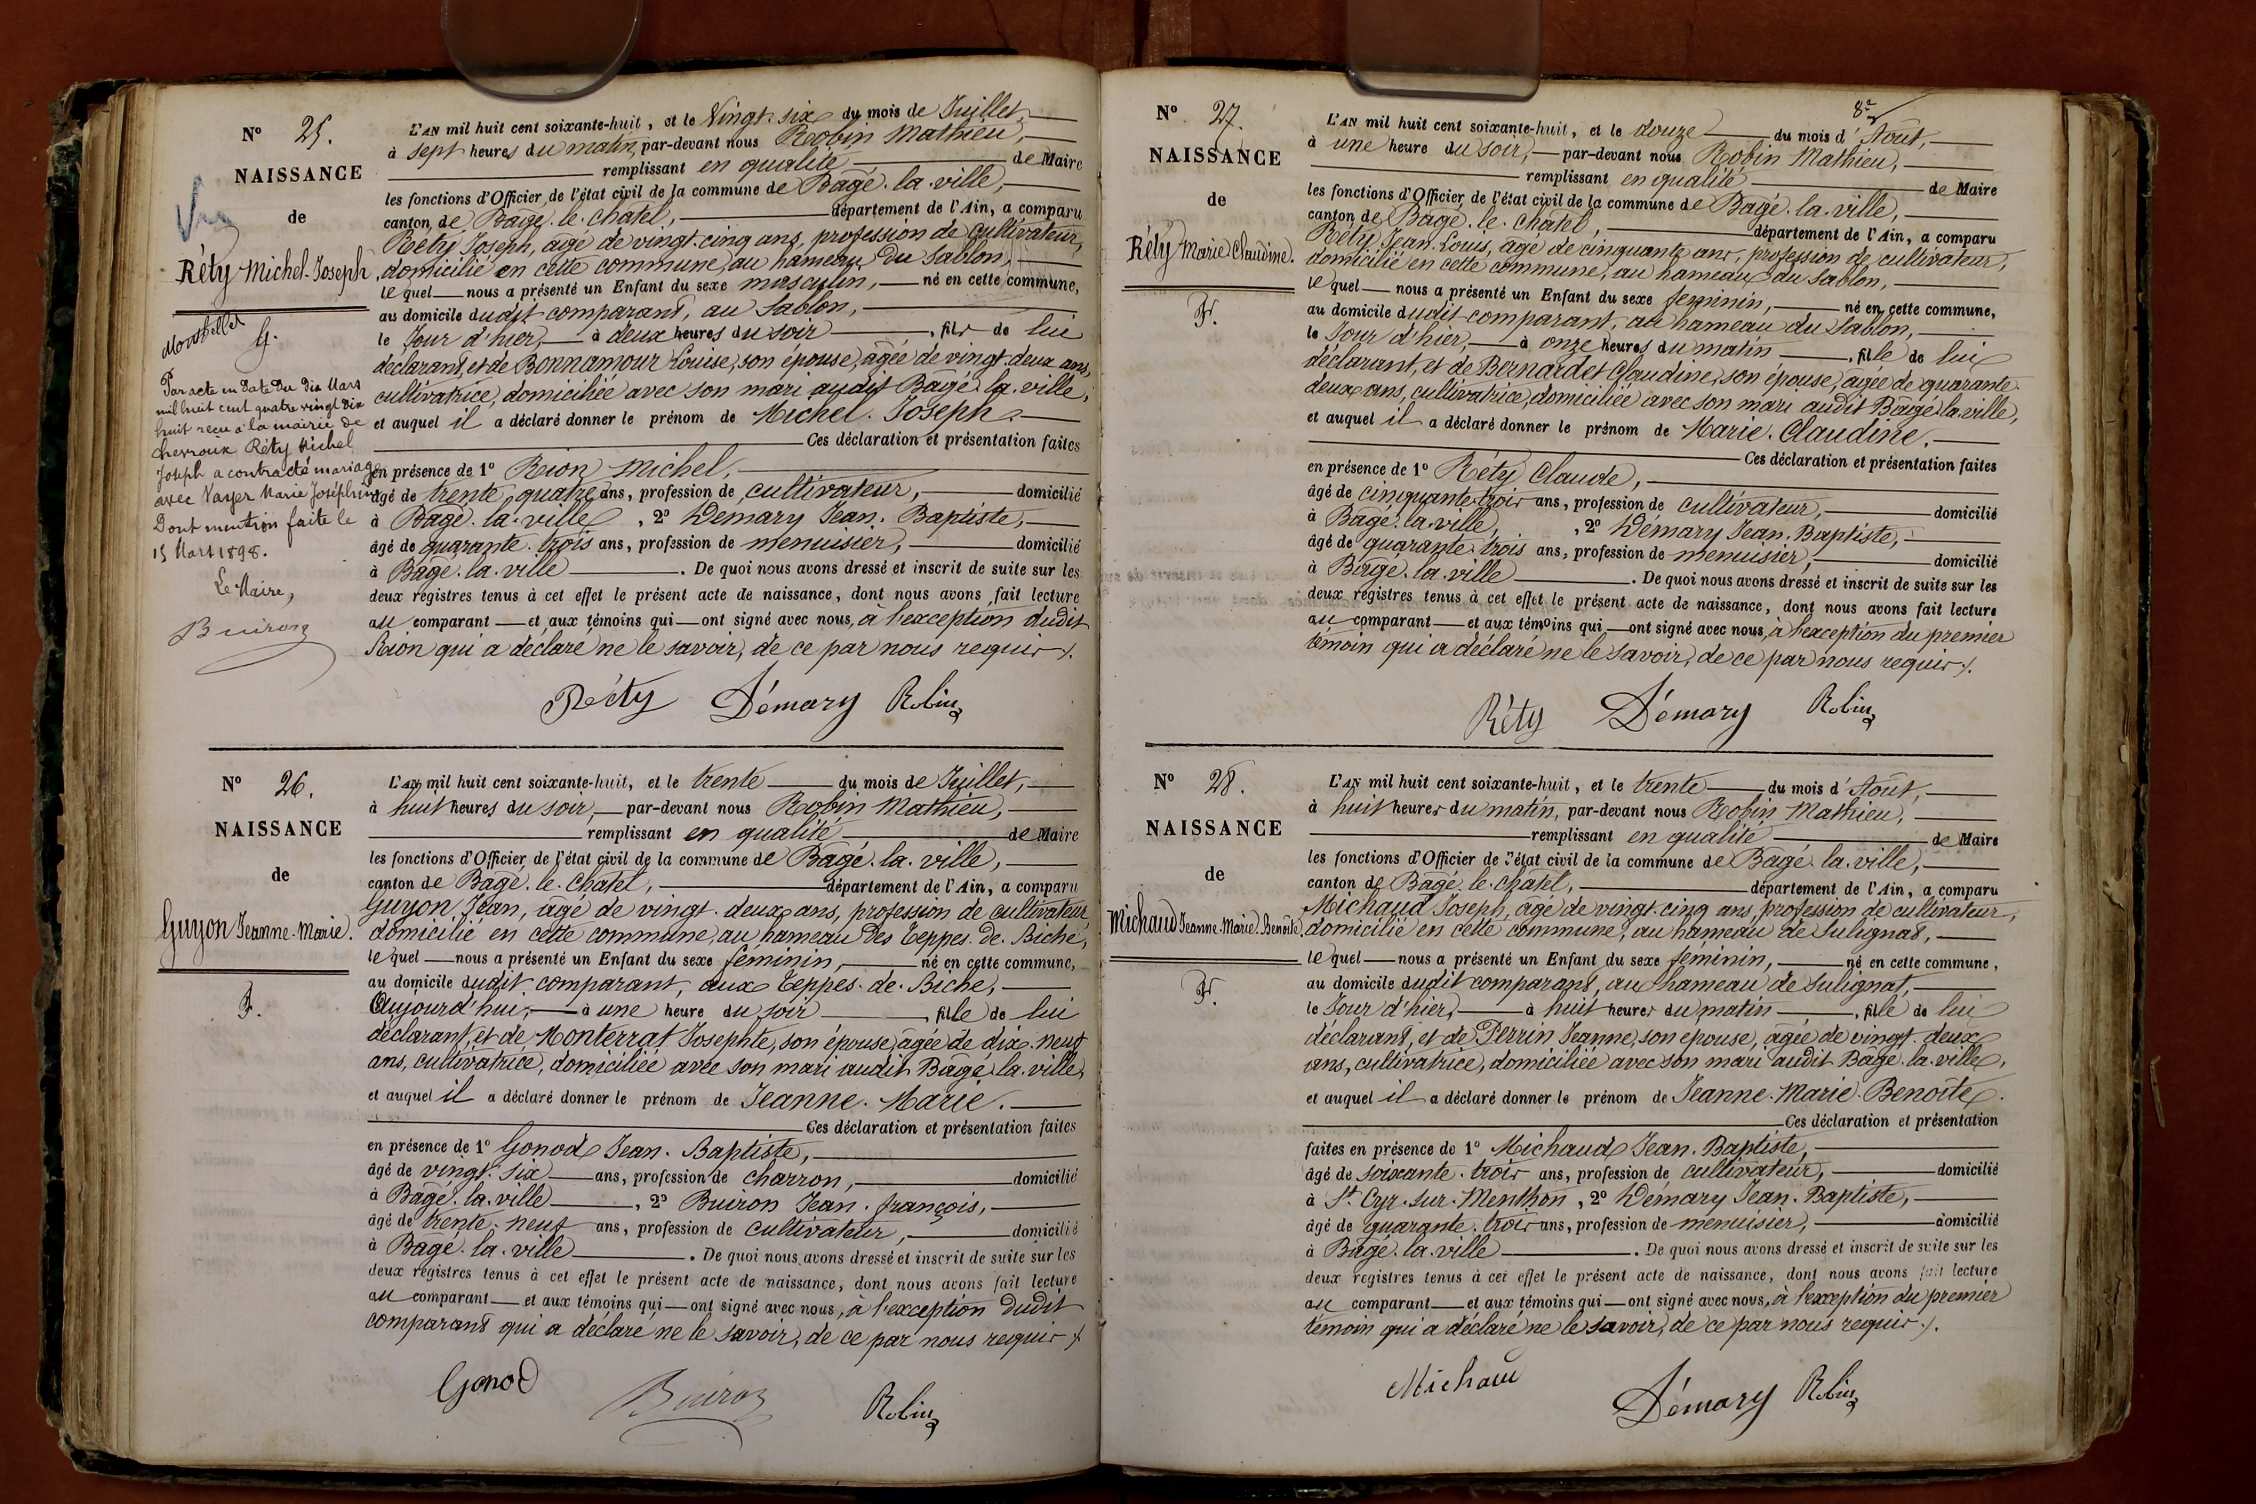 N° 25.
NAISSANCE
de
Réty Michel-Joseph
G.
Par acte en date du dix Mars
mil huit cent quatre vingt dix
huit reçu à la mairie de
Chevroux Réty Michel
Joseph a contracté mariage
avec Vayer Marie Joséphine
Dont mention faite le
15 Mars 1898.
Le Maire,
Buiron
L'AN mil huit cent soixante-huit, et le Vingt-six du mois de Juillet,
à sept heures du matin, par-devant nous Robin Mathieu,
remplissant en qualité de Maire
les fonctions d'Officier de l'état civil de la commune de Bâgé-la-ville,
canton de Bâgé-le-châtel, département de l'Ain, a comparu
Réty Joseph, âgé de vingt-cinq ans, profession de cultivateur,
domicilié en cette commune, au hameau du Sablon,
lequel nous a présenté un Enfant du sexe masculin, né en cette commune,
au domicile dudit comparant, au Sablon,
le Jour d'hier, à deux heures du soir, fils de lui
déclarant, et de Bonnamour Louise, son épouse, âgée de vingt-deux ans,
cultivatrice, domiciliée avec son mari audit Bâgé-la-ville,
et auquel il a déclaré donner le prénom de Michel-Joseph.
Ces déclaration et présentation faites
en présence de 1° Rion Michel,
âgé de trente-quatre ans, profession de cultivateur, domicilié
à Bâgé-la-ville, 2° Démary Jean-Baptiste,
âgé de quarante-trois ans, profession de menuisier, domicilié
à Bâgé-la-ville. De quoi nous avons dressé et inscrit de suite sur les
deux registres tenus à cet effet le présent acte de naissance, dont nous avons fait lecture
au comparant et aux témoins qui ont signé avec nous, à l'exception dudit
Rion qui a déclaré ne le savoir, de ce par nous requis.
Réty Démary Robin
N° 26.
NAISSANCE
de
Guyon Jeanne-Marie.
F.
L'AN mil huit cent soixante-huit, et le trente du mois de Juillet,
à huit heures du soir, par-devant nous Robin Mathieu,
remplissant en qualité de Maire
les fonctions d'Officier de l'état civil de la commune de Bâgé-la-ville,
canton de Bâgé-le-châtel, département de l'Ain, a comparu
Guyon Jean, âgé de vingt-deux ans, profession de cultivateur
domicilié en cette commune, au hameau des Teppes-de-Biche,
lequel nous a présenté un Enfant du sexe féminin, né en cette commune,
au domicile dudit comparant, aux Teppes-de-Biche,
Aujourd'hui, à une heure du soir, fille de lui
déclarant, et de Monterrat Josephte, son épouse, âgée de dix-neuf
ans, cultivatrice, domiciliée avec son mari audit Bâgé-la-ville,
et auquel il a déclaré donner le prénom de Jeanne-Marie.
Ces déclaration et présentation faites
en présence de 1° Gonod Jean-Baptiste,
âgé de vingt-six ans, profession de charron, domicilié
à Bâgé-la-ville, 2° Buiron Jean-françois,
âgé de trente-neuf ans, profession de cultivateur, domicilié
à Bâgé-la-ville. De quoi nous avons dressé et inscrit de suite sur les
deux registres tenus à cet effet le présent acte de naissance, dont nous avons fait lecture
au comparant et aux témoins qui ont signé avec nous, à l'exception dudit
comparant qui a déclaré ne le savoir, de ce par nous requis
Gonod Buiron Robin
8e
N° 27.
NAISSANCE
de
Réty Marie Claudine.
F.
L'AN mil huit cent soixante-huit, et le douze du mois d'Aoŭt,
à une heure du soir, par-devant nous Robin Mathieu,
remplissant en qualité de Maire
les fonctions d'Officier de l'état civil de la commune de Bâgé-la-ville,
canton de Bâgé-le-châtel, département de l'Ain, a comparu
Réty Jean-Louis, âgé de cinquante ans, profession de cultivateur,
domicilié en cette commune, au hameau du Sablon,
lequel nous a présenté un Enfant du sexe féminin, né en cette commune,
au domicile dudit comparant, au hameau du Sablon,
le Jour d'hier, à onze heures du matin, fille de lui
déclarant, et de Bernardet Claudine, son épouse, âgée de quarante-
deux ans, cultivatrice, domiciliée avec son mari audit Bâgé-la-ville,
et auquel il a déclaré donner le prénom de Marie-Claudine.
Ces déclaration et présentation faites
en présence de 1° Réty Claude,
âgé de cinquante-trois ans, profession de cultivateur, domicilié
à Bâgé-la-ville, 2° Démary Jean-Baptiste,
âgé de quarante-trois ans, profession de menuisier, domicilié
à Bâgé-la-ville. De quoi nous avons dressé et inscrit de suite sur les
deux registres tenus à cet effet le présent acte de naissance, dont nous avons fait lecture
au comparant et aux témoins qui ont signé avec nous, à l'exception du premier
témoin qui a déclaré ne le savoir, de ce par nous requis.
Réty Démary Robin
N° 28.
NAISSANCE
de
Michaud Jeanne-Marie-Benoîte.
F.
L'AN mil huit cent soixante-huit, et le trente du mois d'Aoŭt,
à huit heures du matin, par-devant nous Robin Mathieu,
remplissant en qualité de Maire
les fonctions d'Officier de l'état civil de la commune de Bâgé-la-ville,
canton de Bâgé-le-châtel, département de l'Ain, a comparu
Michaud Joseph, âgé de vingt-cinq ans, profession de cultivateur,
domicilié en cette commune, au hameau de Sulignat,
lequel nous a présenté un Enfant du sexe féminin, né en cette commune,
au domicile dudit comparant, au hameau de Sulignat,
le Jour d'hier, à huit heures du matin, fille de lui
déclarant, et de Perrin Jeanne, son épouse, âgée de vingt-deux
ans, cultivatrice, domiciliée avec son mari audit Bâgé-la-ville,
et auquel il a déclaré donner le prénom de Jeanne-Marie-Benoîte.
Ces déclaration et présentation
faites en présence de 1° Michaud Jean-Baptiste,
âgé de soixante-trois ans, profession de cultivateur, domicilié
à St Cyr-sur-Menthon, 2° Démary Jean-Baptiste,
âgé de quarante-trois ans, profession de menuisier, domicilié
à Bâgé-la-ville. De quoi nous avons dressé et inscrit de suite sur les
deux registres tenus à cet effet le présent acte de naissance, dont nous avons fait lecture
au comparant et aux témoins qui ont signé avec nous, à l'exception du premier
témoin qui a déclaré ne le savoir, de ce par nous requis.
Michaud Démary Robin